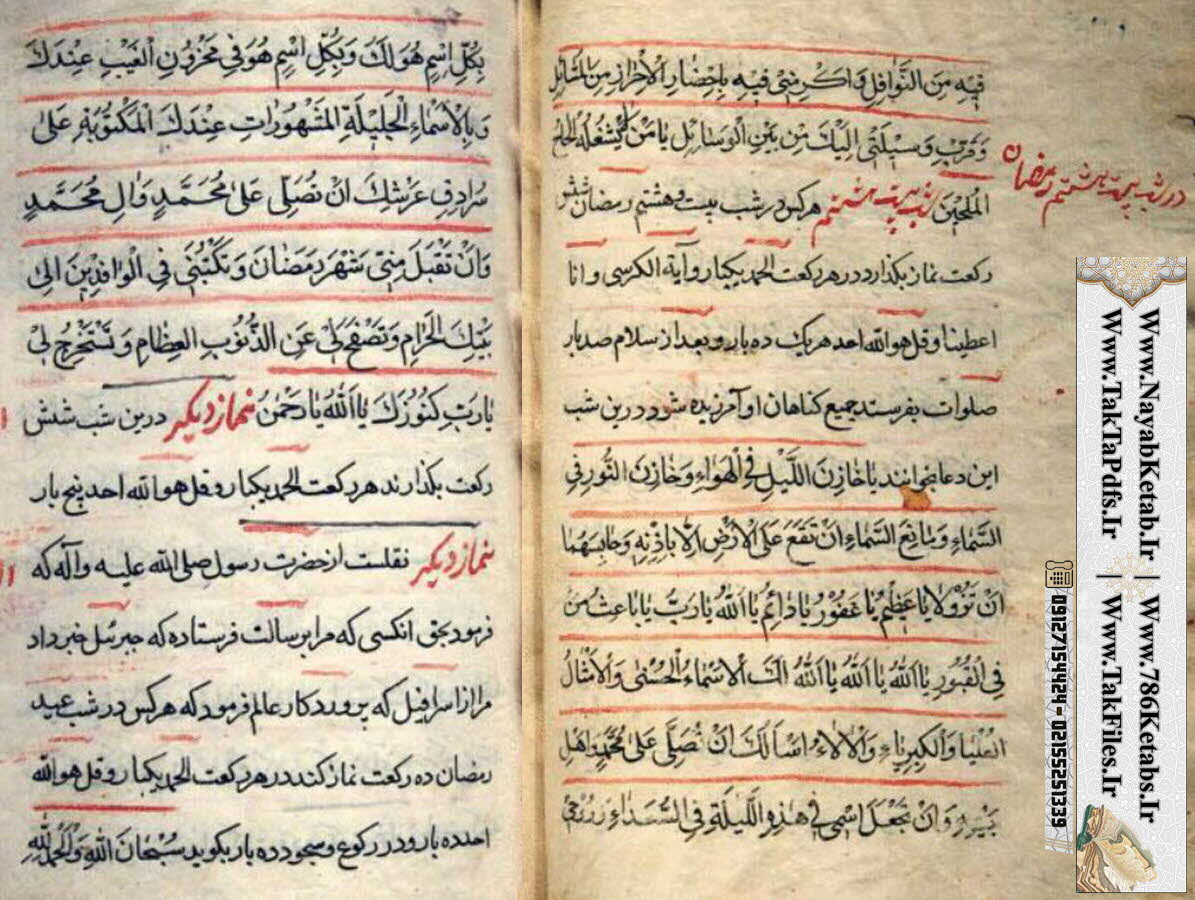 فیه من النوافل واکرمنی فیه باحضار الاحراز من المسائل
وقرب وسیلتی الیک من بین الوسائل یا من لایشغله الحاح
الملحین شب بیست هشتم هرکس در شب بیست و هشتم رمضان شش
در شب بیست هشتم رمضان
رکعت نماز بکذارد در هر رکعت الحمد یکبار و آیة الکرسی و انا
اعطینا و قل هو الله احد هر یک ده بار و بعد از سلام صد بار
صلوات بفرستد جمیع کناهان او آمرزیده شود درین شب
این دعا بخوانند یَا خَازِنَ اللَّیْلِ فِی الْهَوَاءِ وَخَازِنَ النُّورِ فِی
السَّمَاءِ وَمَانِعَ السَّمَاءِ اَنْ تَقَعَ عَلَی الْاَرْضِ اِلَّا بِاِذْنِهِ وَحَابِسَهُمَا
اَنْ تَزُولَا یَا عَظِیمُ یَا غَفُورُ یَا دَائِمُ یَا اَللّٰهُ یَا رَبِّ یَا بَاعِثَ مَنْ
فِی الْقُبُورِ یَا اَللّٰهُ یَا اَللّٰهُ یَا اَللّٰهُ لَکَ الْاَسْمَاءُ الْحُسْنٰی وَالْاَمْثَالُ
الْعُلْیَا وَالْکِبْرِیَاءُ وَالْاٰلَاءُ اَسْاَلُکَ اَنْ تُصَلِّیَ عَلٰی مُحَمَّدٍ وَاَهْلِ
وَاَنْ تَجْعَلَ اسْمِی فِی هٰذِهِ اللَّیْلَةِ فِی السُّعَدَاءِ وَرُوحِی
بِکُلِّ اِسْمٍ هُوَ لَکَ وَبِکُلِّ اِسْمٍ هُوَ فِی مَخْزُونِ الْغَیْبِ عِنْدَکَ
وَبِالْاَسْمَاءِ الْجَلِیلَةِ الْمَشْهُورَاتِ عِنْدَکَ الْمَکْتُوبَةِ عَلٰی
سُرَادِقِ عَرْشِکَ اَنْ تُصَلِّیَ عَلٰی مُحَمَّدٍ وَاٰلِ مُحَمَّدٍ
وَاَنْ تَقْبَلَ مِنِّی شَهْرَ رَمَضَانَ وَتَکْتُبَنِی فِی الْوَافِدِینَ اِلٰی
بَیْتِکَ الْحَرَامِ وَتَصْفَحَ لِی عَنِ الذُّنُوبِ الْعِظَامِ وَتَسْتَخْرِجَ لِی
یَا رَبِّ کُنُوزَکَ یَا اَللّٰهُ یَا رَحْمٰنُ نماز دیکر درین شب شش
رکعت بکذارند هر رکعت الحمد یکبار و قل هو الله احد پنج بار
نماز دیکر نقلست از حضرت رسول صلی الله علیه وآله که
فرمود بحق انکسی که مرا برسالت فرستاده که جبرئیل خبر داد
مرا از اسرافیل که پروردکار عالم فرمود که هرکس در شب عید
رمضان ده رکعت نماز کند در هر رکعت الحمد یکبار و قل هو الله
احد ده بار و در رکوع و سجود ده بار بکوید سُبْحَانَ اللّٰهِ وَالْحَمْدُ لِلّٰهِ
Www.NayabKetab.Ir | Www.786Ketabs.Ir
Www.TakTaPdfs.Ir | Www.TakFiles.Ir
09127154424-02155251339